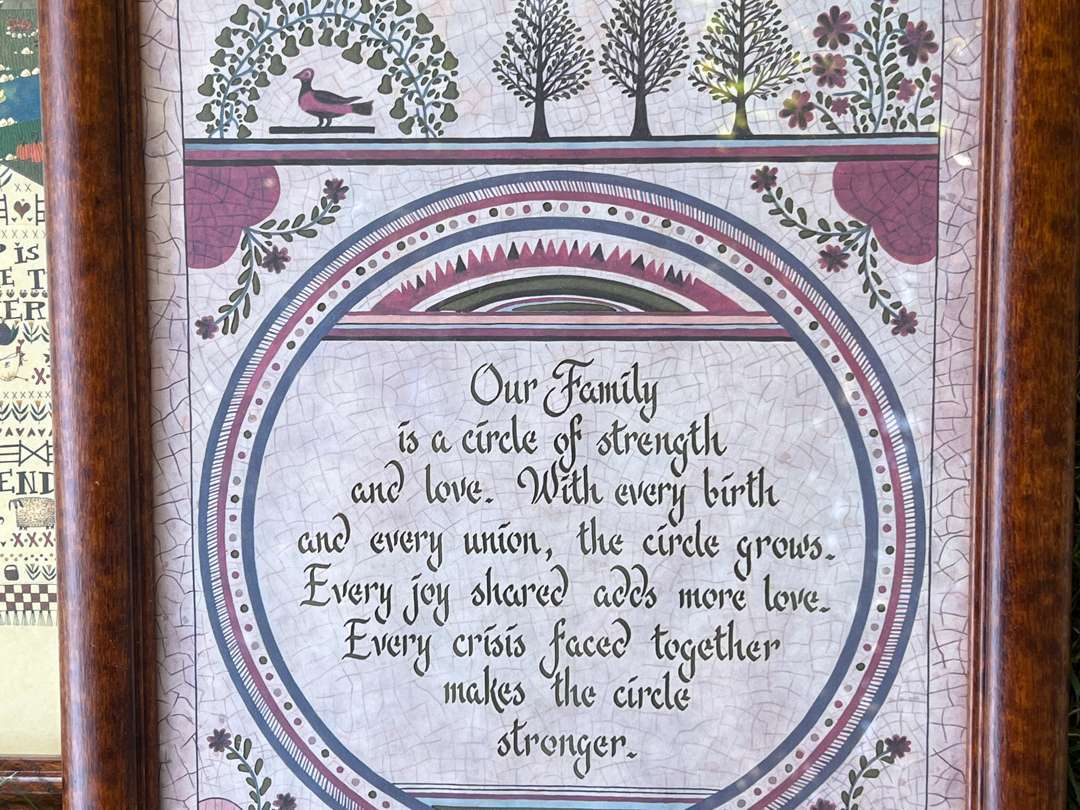 Our Family
is a circle of strength
and love. With every birth
and every union, the circle grows.
Every joy shared adds more love.
Every crisis faced together
makes the circle
stronger.
IS
E T
ER
END